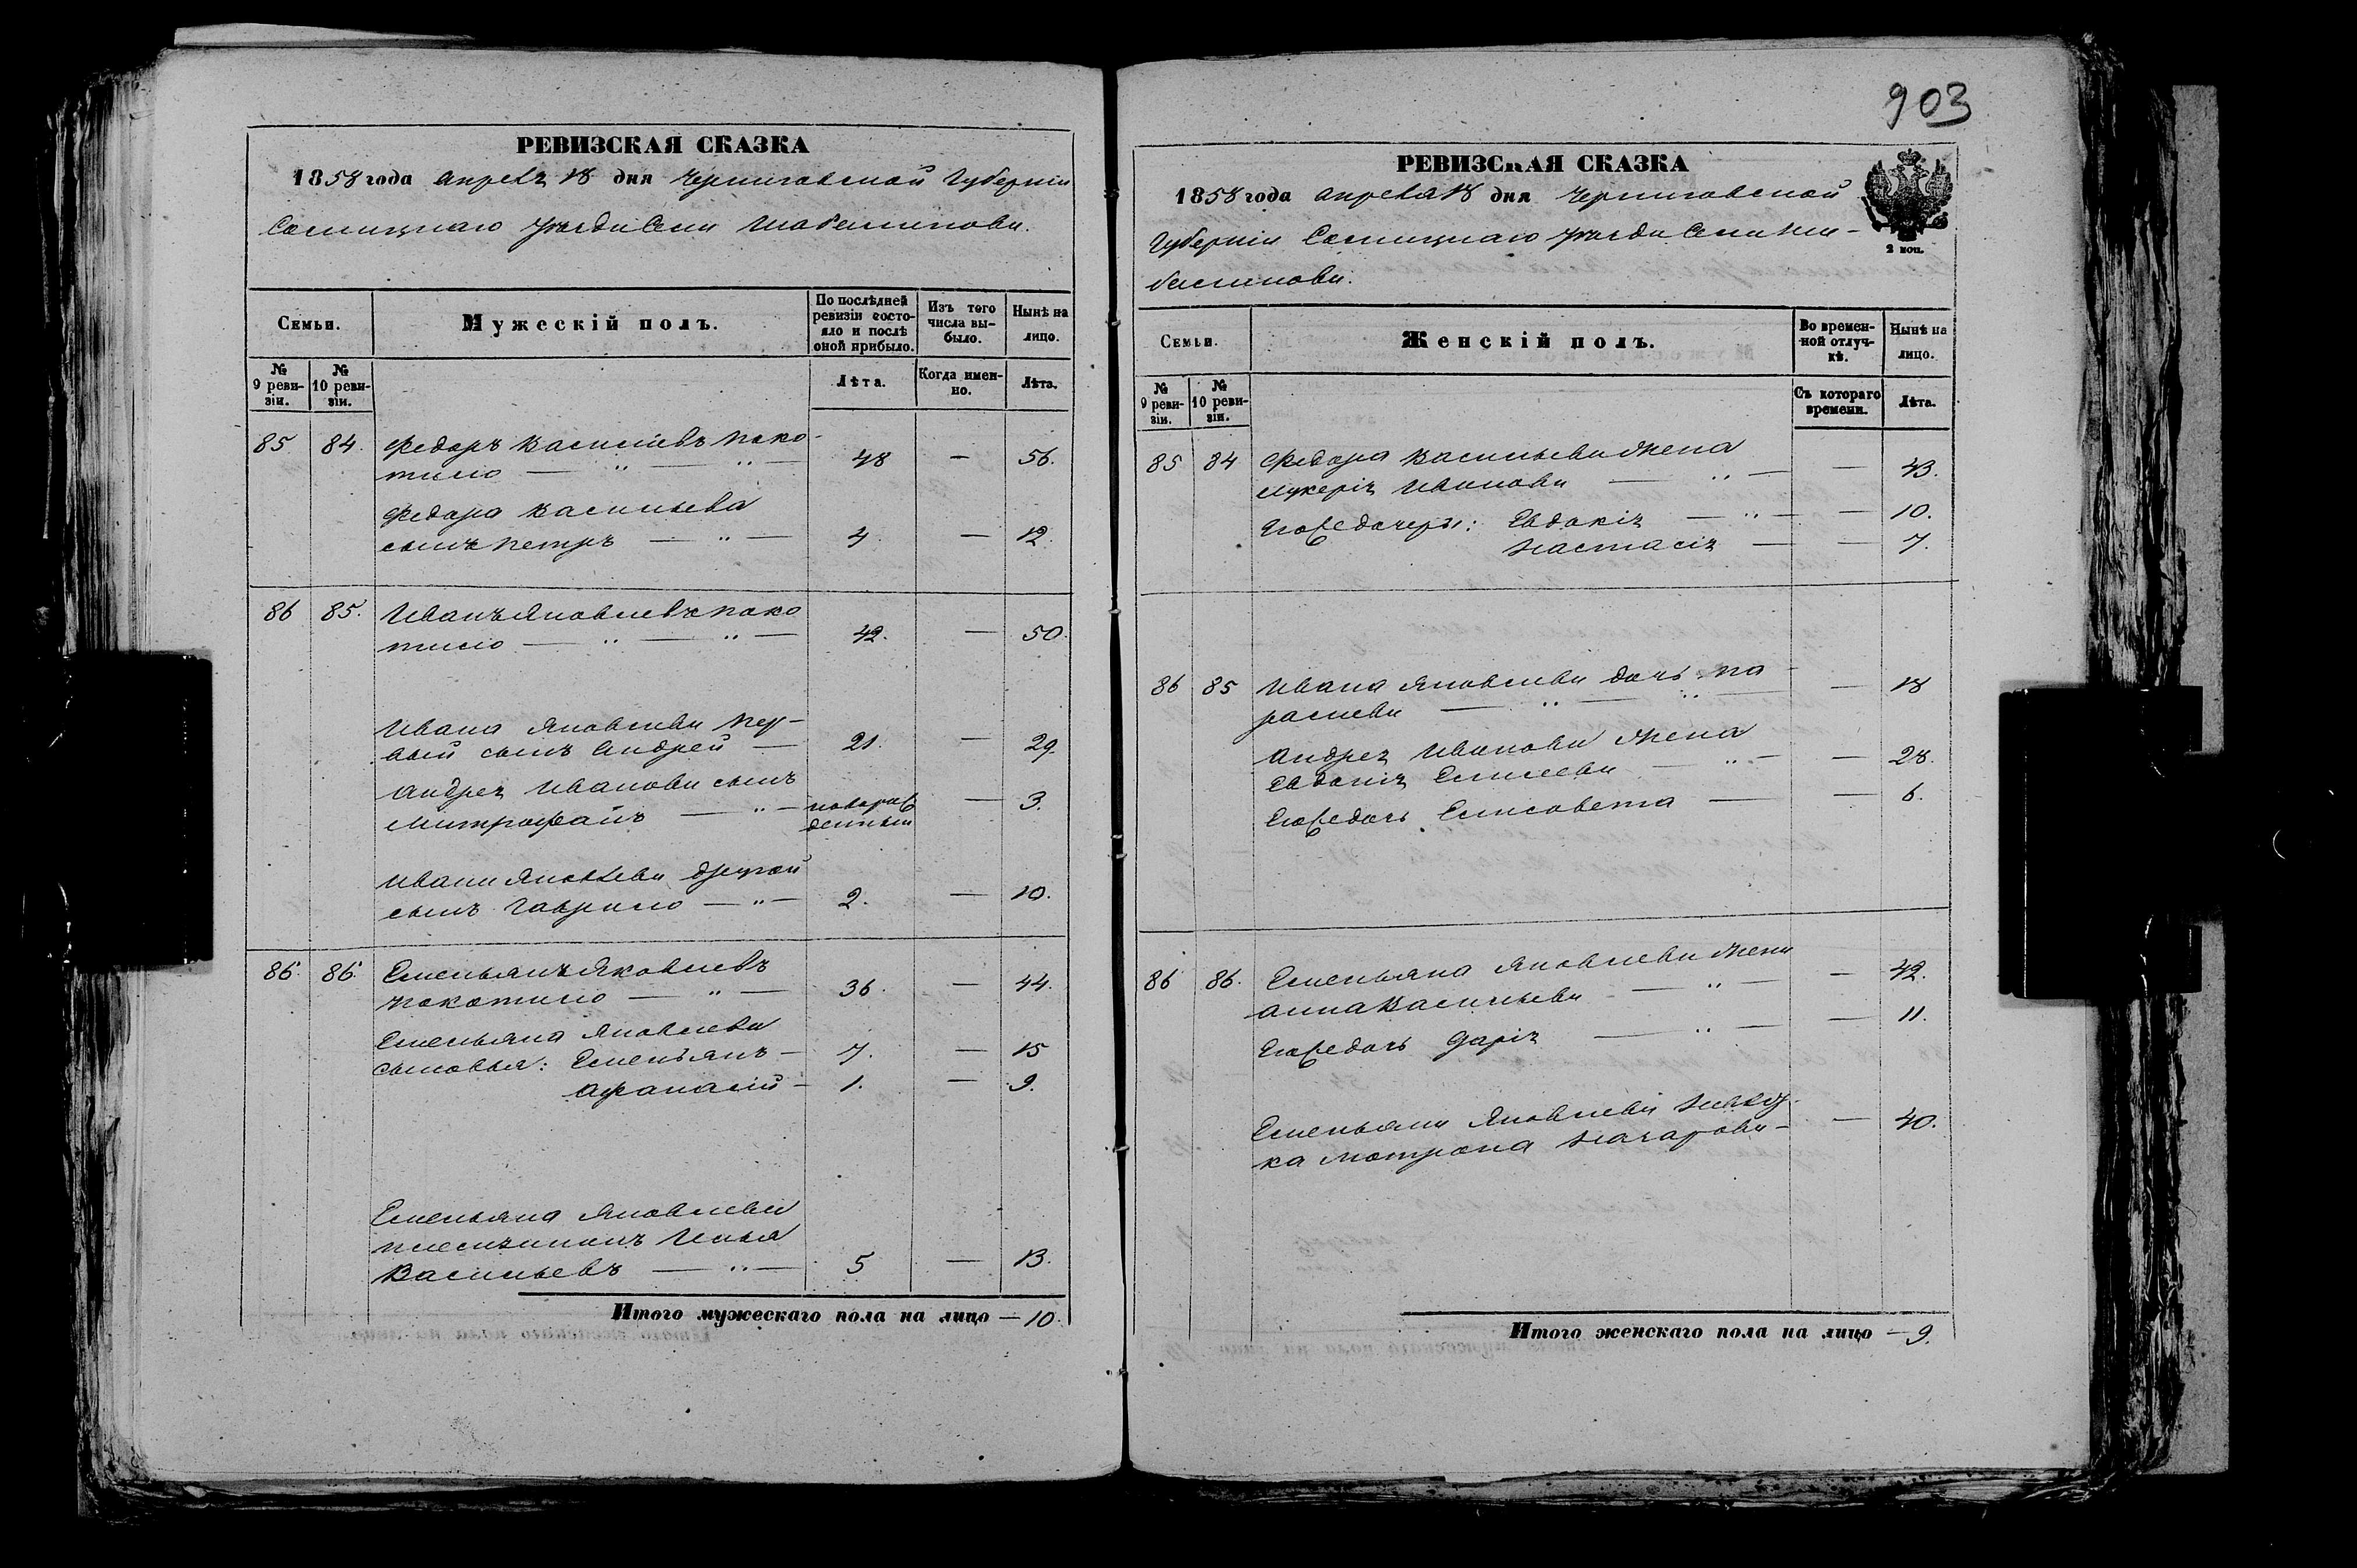 903
РЕВИЗСКАЯ СКАЗКА
1858 года апреля 18 дня Черниговской Губерніи
Сосницкаго уѣзда Села Шабалинова.
Семьи.
Мужескій полъ.
По послѣдней ревизіи состояло и послѣ оной прибыло.
Изъ того числа выбыло.
Нынѣ на лицо.
№ 9 ревизіи.
№ 10 ревизіи.
Лѣта.
Когда именно.
Лѣта.
85 84. Федоръ Васильевъ Поко-
тило — " — " — 48 — 56.
Федора Васильева
сынъ Петръ — " — 4 — 12.
86 85. Иванъ Яковлевъ Поко
тило — " — " — 42. — 50.
Ивана Яковлева пер-
вый сынъ Андрей — 21. — 29.
Андрея Иванова сынъ
Митрофанъ — " — новорож
денный — 3.
Ивана Яковлева другой
сынъ Гаврило — " — 2. — 10.
86. 86. Емельянъ Яковлевъ
Покотило — " — 36. — 44.
Емельяна Яковлева
сыновья: Емельянъ — 7. — 15
Афанасій — 1. — 9.
Емельяна Яковлева
племянникъ Илья
Васильевъ — " — 5 — 13.
Итого мужескаго пола на лицо — 10.
РЕВИЗСКАЯ СКАЗКА
1858 года апреля 18 дня Черниговской
Губерніи Сосницкаго уѣзда Села Ша-
балинова.
2 коп.
Семьи.
Женскій полъ.
Во временной отлучкѣ.
Нынѣ на лицо.
№ 9 ревизіи.
№ 10 ревизіи.
Съ котораго времени.
Лѣта.
85 84 Федора Васильева жена
Лукерія Иванова — " — — 43.
Его же дочери: Евдокія — " — — 10.
Настасія — — 7.
86 85 Ивана Яковлева дочь Па-
расковія — " — " — — 18
Андрея Иванова жена
Евдокія Елисеева — " — — 28.
Его же дочь Елисавета — — 6.
86 86. Емельяна Яковлева жена
Анна Васильева — " — — 42.
Его же дочь Дарія — " — — 11.
Емельяна Яковлева невѣст-
ка Мотрона Назарова — — 40.
Итого женскаго пола на лицо — 9.